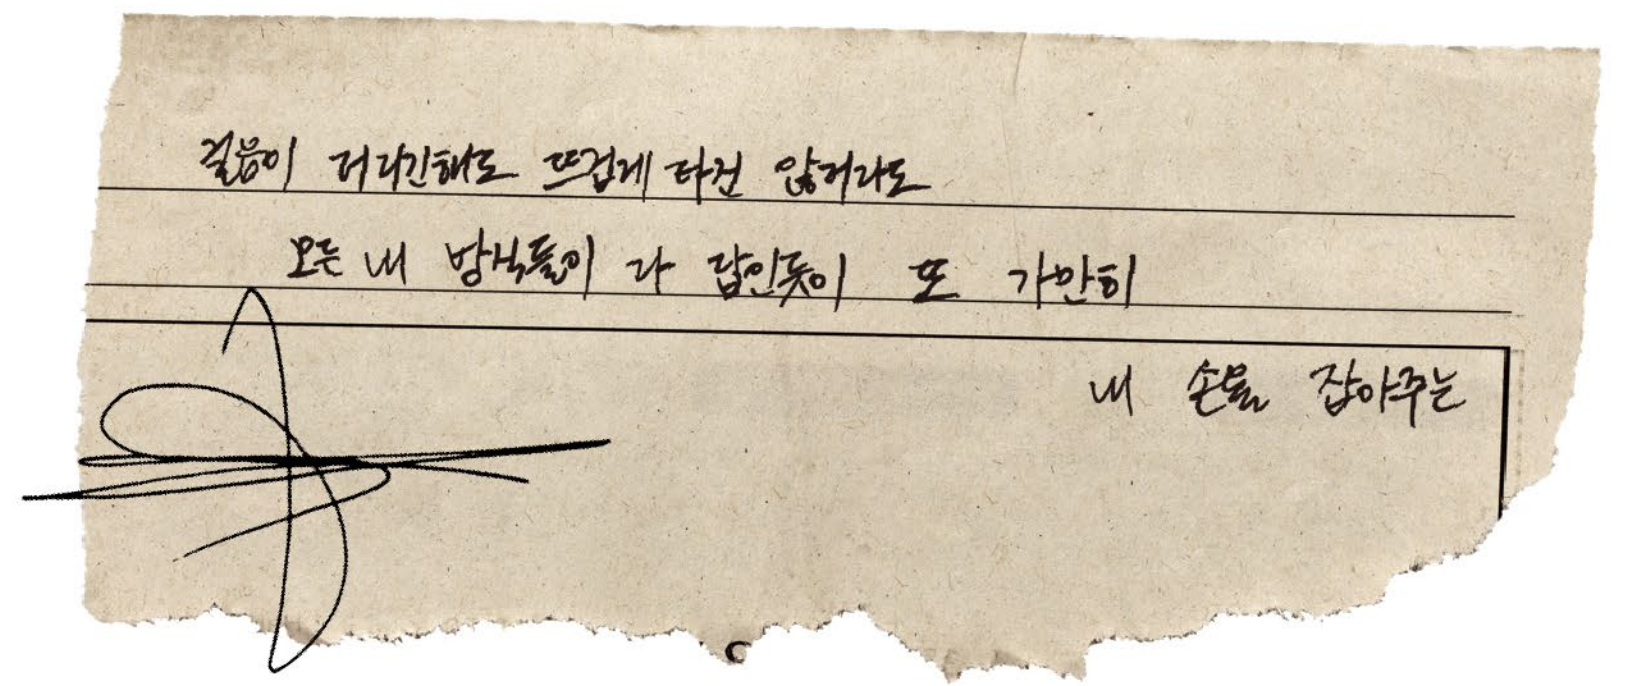 걸음이 더디긴해도 뜨겁게 타진 않더라도
모든 내 방식들이 다 답인듯이 또 가만히
내 손을 잡아주는